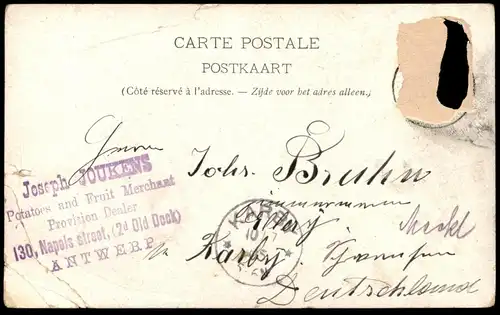 CARTE POSTALE
POSTKAART
(Côté réservé à l'adresse. — Zijde voor het adres alleen.)
Herrn
Johs. Bruhn
Joseph JOUKENS
Potatoes and Fruit Merchant
Provision Dealer
130, Napels street, (2d Old Dock)
ANTWERP
KARBY
Karby
Deutschland